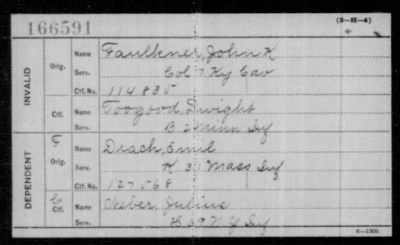 166591
(3-II-4)
INVALID
Orig.
Name Faulkner, John K
Serv. Col 7 Ky Cav
Ctf. No. 114835
Ctf.
Name Toogood, Dwight
Serv. B 2 Minn Inf
DEPENDENT
Orig.
Name Drach, Emil
Serv. K Mass Inf
Ctf. No. 127068
C
Ctf.
Name Weber, Julius
Serv. H 39 N Y Inf